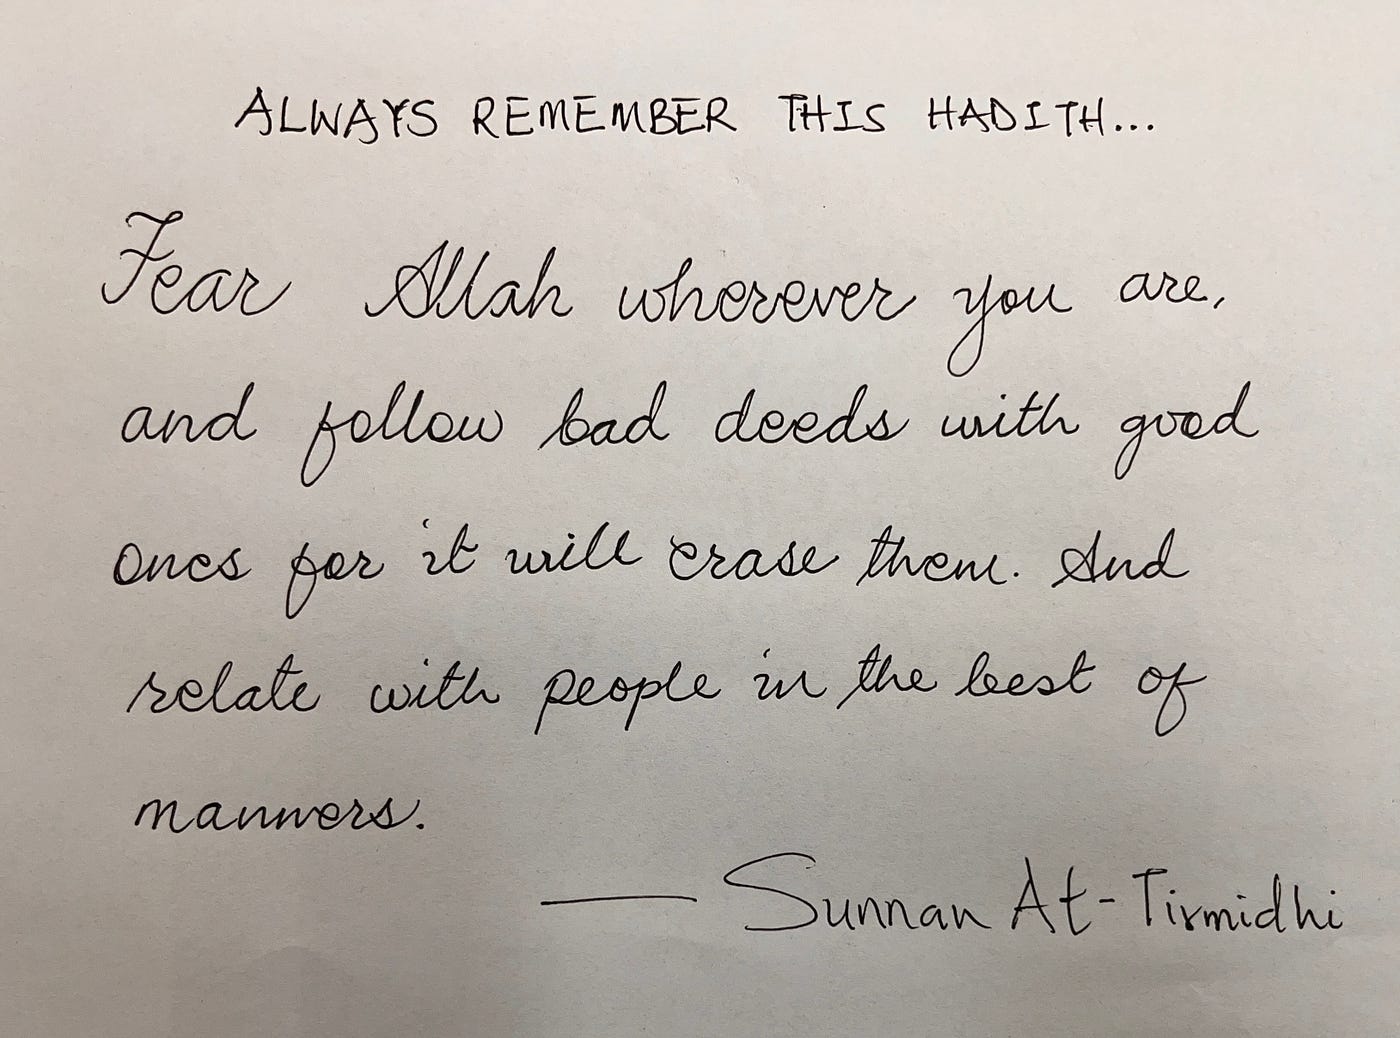 ALWAYS REMEMBER THIS HADITH...
Fear Allah wherever you are,
and follow bad deeds with good
ones for it will erase them. And
relate with people in the best of
manners.
— Sunnan At-Tirmidhi